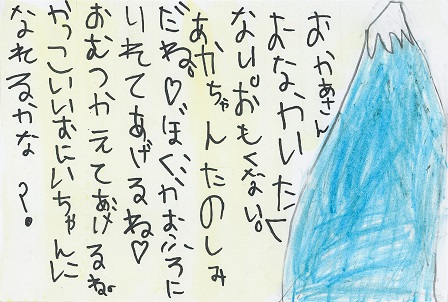 おかあさん
おなかいたく
ない。おもくない。
あかちゃんたのしみ
だね。♡ぼくがおふろに
いれてあげるね♡
おむつかえてあげるね。
かっこいいおにいちゃんに
なれるかな?。